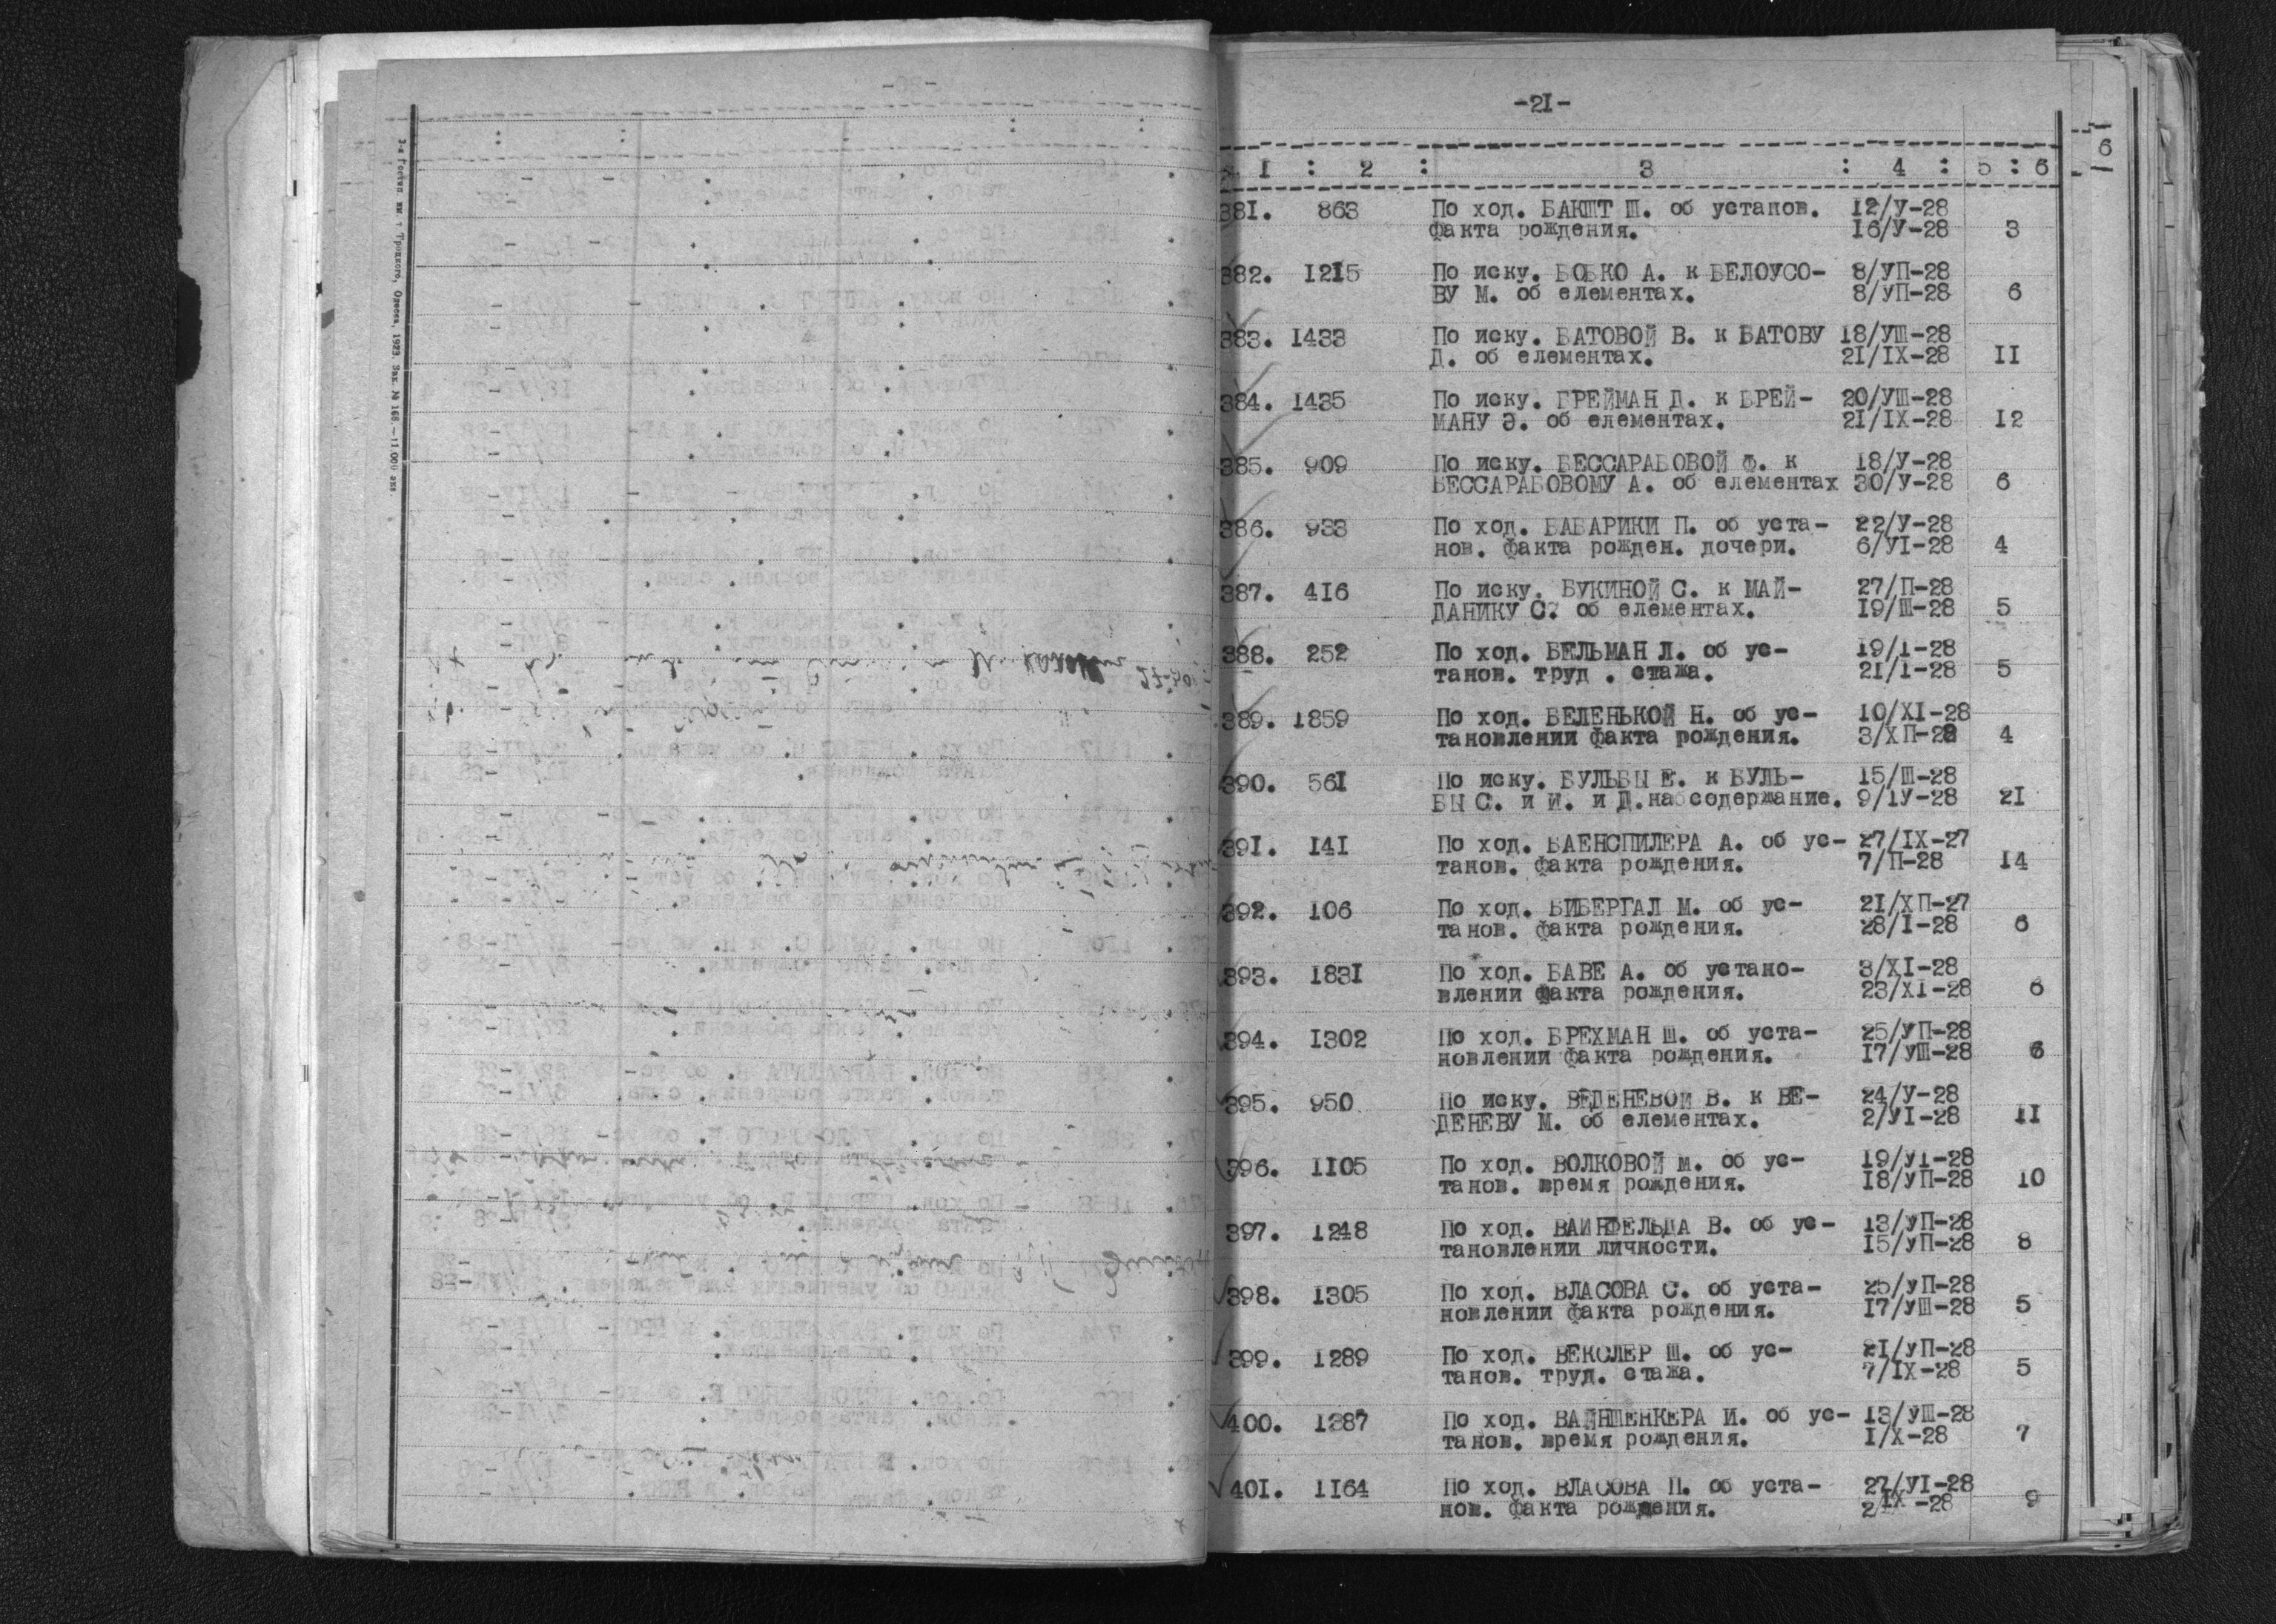 3-я Гостип. им. т. Троцкого, Одесса, 1923. Зак. № 166.—11.000 экз.
-21-
1 : 2 : 3 : 4 : 5 : 6
6
381. 863 По ход. БАКШТ Ш. об установ. 12/У-28
факта рождения. 16/У-28 3
382. 1215 По иску. БОБКО А. к БЕЛОУСО- 8/УП-28
ВУ М. об елементах. 8/УП-28 6
383. 1433 По иску. БАТОВОЙ В. к БАТОВУ 18/УШ-28
Д. об елементах. 21/IX-28 11
384. 1435 По иску. БРЕЙМАН Д. к БРЕЙ- 20/УШ-28
МАНУ Э. об елементах. 21/IX-28 12
385. 909 По иску. БЕССАРАБОВОЙ Ф. к 18/У-28
БЕССАРАБОВОМУ А. об елементах 30/У-28 6
386. 933 По ход. БАБАРИКИ П. об уста- 22/У-28
нов. факта рожден. дочери. 6/УI-28 4
387. 416 По иску. БУКИНОЙ С. к МАЙ- 27/П-28
ДАНИКУ С. об елементах. 19/Ш-28 5
388. 252 По ход. БЕЛЬМАН Л. об ус- 19/I-28
танов. труд . стажа. 21/I-28 5
389. 1859 По ход. БЕЛЕНЬКОЙ Н. об ус- 10/XI-28
тановлении факта рождения. 3/ХП-28 4
390. 561 По иску. БУЛЬБЫ Е. к БУЛЬ- 15/Ш-28
БЫ С. и И. и Д. на содержание. 9/IУ-28 21
391. 141 По ход. БАЕНСПИЛЕРА А. об ус- 27/IX-27
танов. факта рождения. 7/П-28 14
392. 106 По ход. БИБЕРГАЛ М. об ус- 21/ХП-27
танов. факта рождения. 28/I-28 6
393. 1831 По ход. БАВЕ А. об устано- 3/XI-28
влении факта рождения. 23/XI-28 6
394. 1302 По ход. БРЕХМАН Ш. об уста- 25/УП-28
новлении факта рождения. 17/УШ-28 6
395. 950 По иску. ВЕДЕНЕВОЙ В. к ВЕ- 24/У-28
ДЕНЕВУ М. об елементах. 2/УI-28 11
396. 1105 По ход. ВОЛКОВОЙ М. об ус- 19/УI-28
танов. время рождения. 18/УП-28 10
397. 1248 По ход. ВАЙНФЕЛЬДА В. об ус- 13/УП-28
тановлении личности. 15/УП-28 8
398. 1305 По ход. ВЛАСОВА С. об уста- 25/УП-28
новлении факта рождения. 17/УШ-28 5
399. 1289 По ход. ВЕКСЛЕР Ш. об ус- 21/УП-28
танов. труд. стажа. 7/IX-28 5
400. 1387 По ход. ВАЙНШЕНКЕРА И. об ус- 13/УШ-28
танов. время рождения. 1/X-28 7
401. 1164 По ход. ВЛАСОВА П. об уста- 27/УI-28
нов. факта рождения. 2/IX-28 9